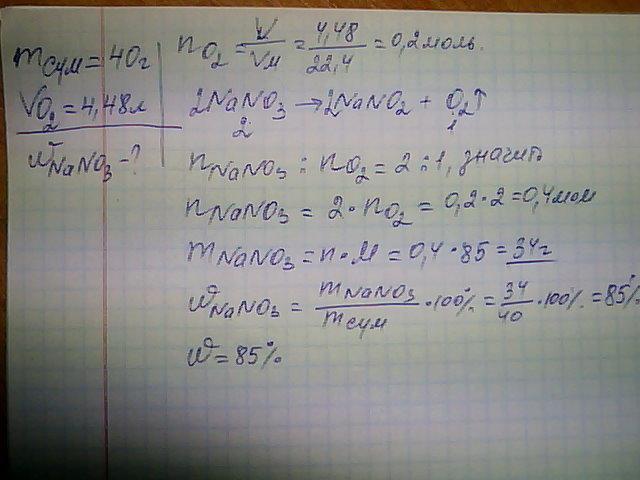 mсум = 40г
VO2 = 4,48л
ωNaNO3 - ?
nO2 = V/Vм = 4,48/22,4 = 0,2 моль.
2NaNO3 → 2NaNO2 + O2↑
2 1
nNaNO3 : nO2 = 2 : 1, значит
nNaNO3 = 2 · nO2 = 0,2 · 2 = 0,4 мол
mNaNO3 = n · M = 0,4 · 85 = 34г
ωNaNO3 = mNaNO3/mсум · 100% = 34/40 · 100% = 85%
ω = 85%